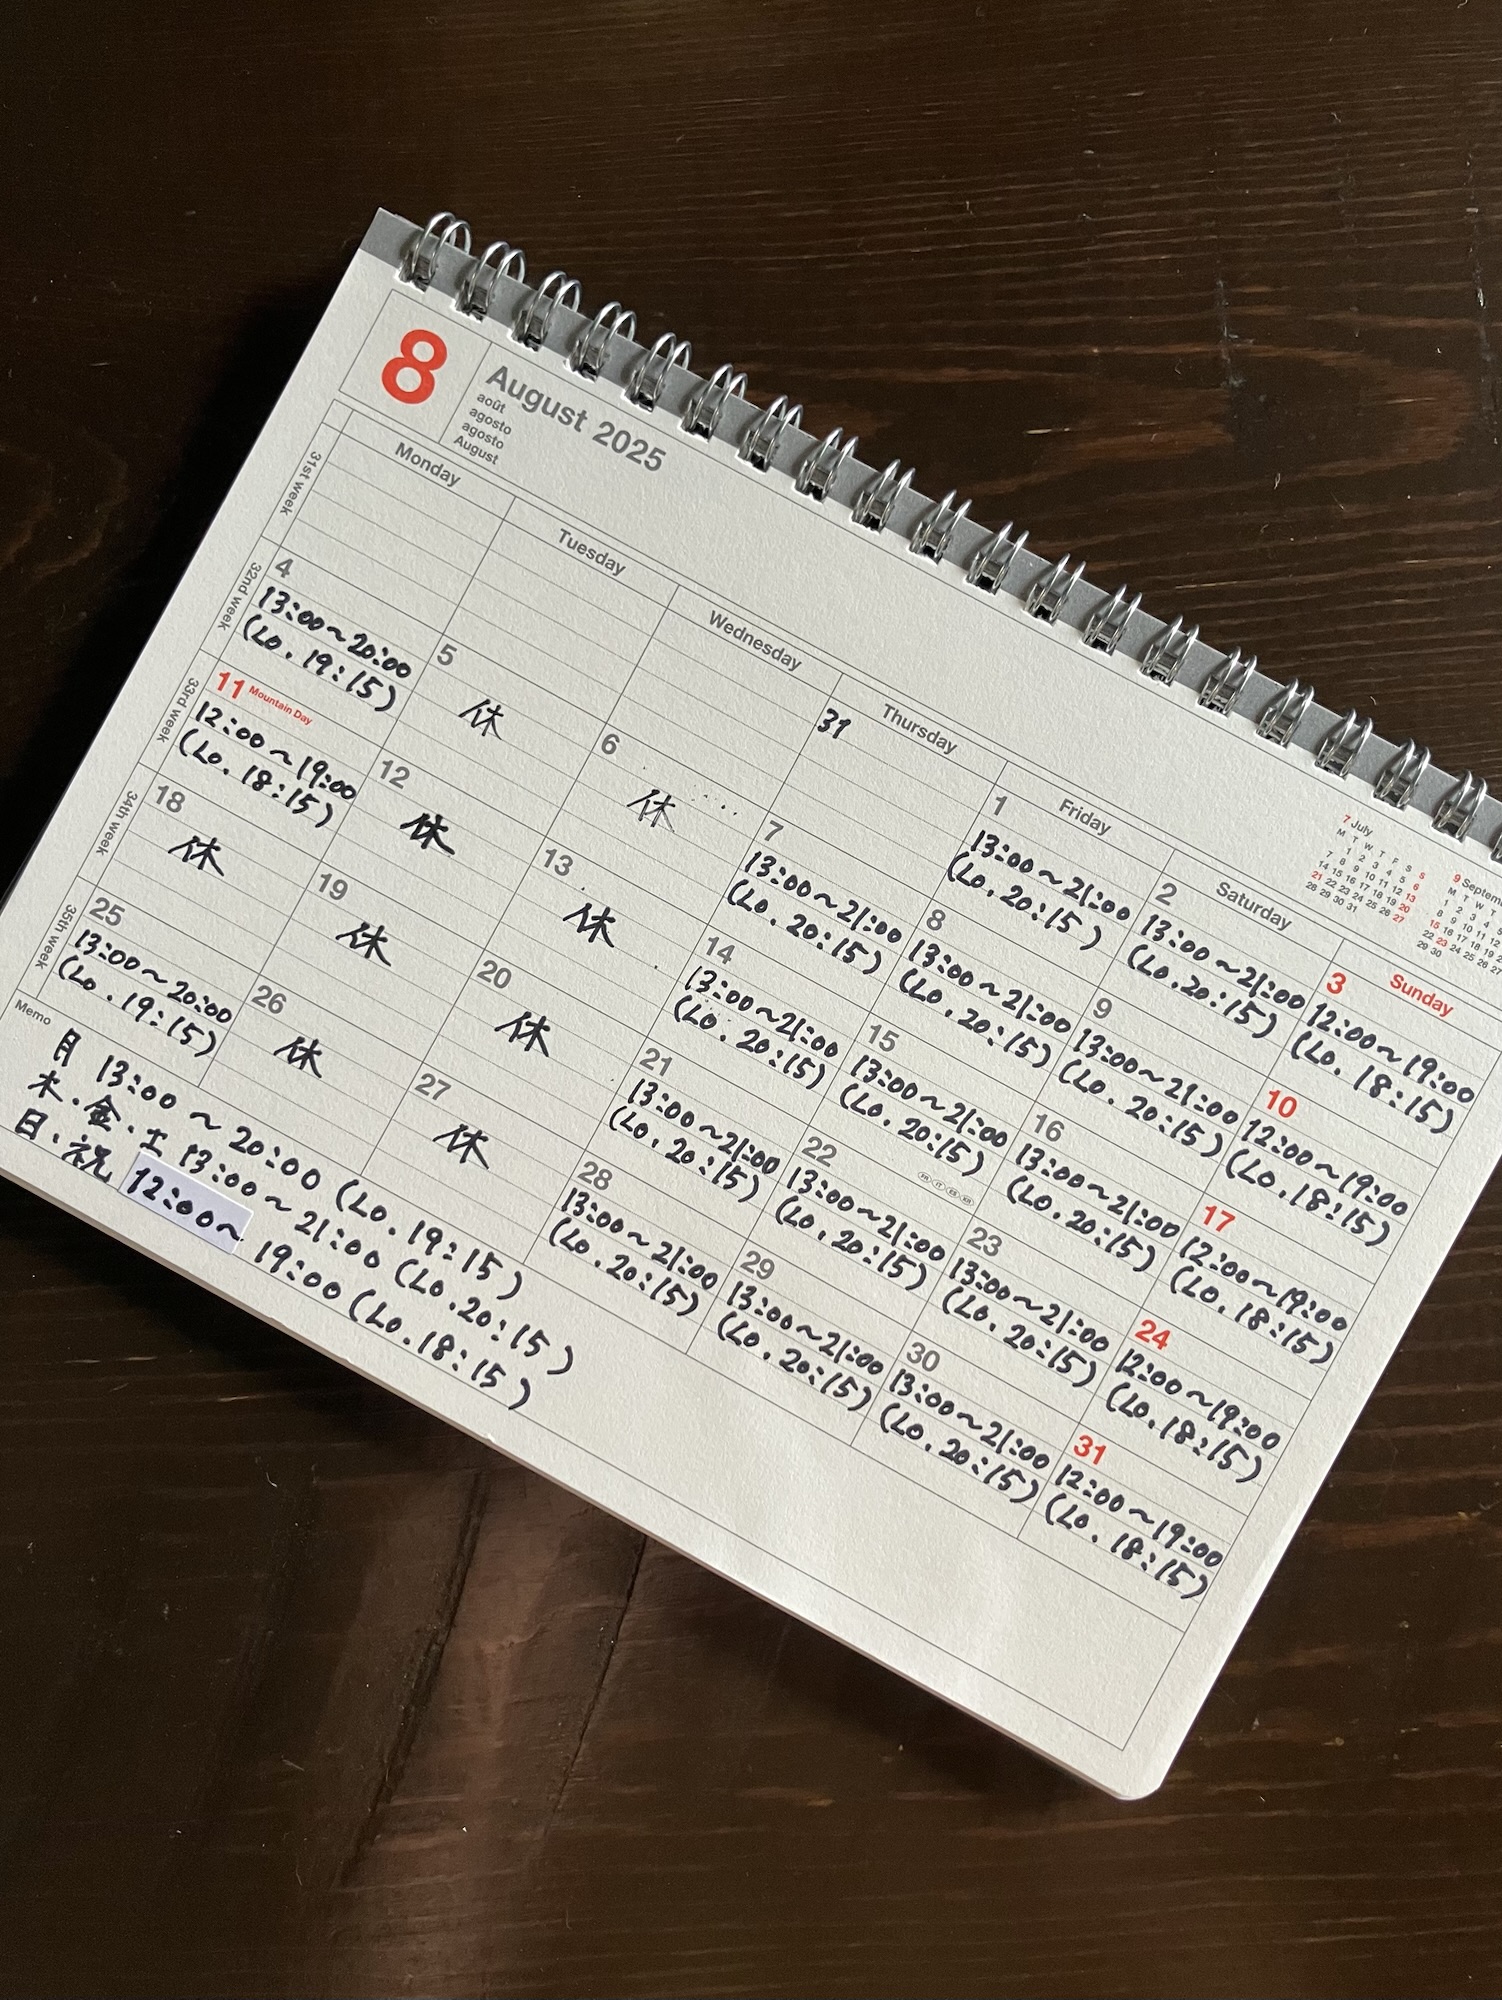 8
August 2025
août
agosto
agosto
August
7 July
M T W T F S S
1 2 3 4 5 6
7 8 9 10 11 12 13
14 15 16 17 18 19 20
21 22 23 24 25 26 27
28 29 30 31
9 Septem
M T W T
1 2 3 4
8 9 10 11
15 16 17 18
22 23 24 25 26 27
29 30
Monday
Tuesday
Wednesday
Thursday
Friday
Saturday
Sunday
31st week
31
1
13:00〜21:00
(Lo. 20:15)
2
13:00〜21:00
(Lo. 20:15)
3
12:00〜19:00
(Lo. 18:15)
32nd week
4
13:00〜20:00
(Lo. 19:15)
5
休
6
休
7
13:00〜21:00
(Lo. 20:15)
8
13:00〜21:00
(Lo. 20:15)
9
13:00〜21:00
(Lo. 20:15)
10
12:00〜19:00
(Lo. 18:15)
33rd week
11 Mountain Day
12:00〜19:00
(Lo. 18:15)
12
休
13
休
14
13:00〜21:00
(Lo. 20:15)
15
13:00〜21:00
(Lo. 20:15)
16
13:00〜21:00
(Lo. 20:15)
17
12:00〜19:00
(Lo. 18:15)
34th week
18
休
19
休
20
休
21
13:00〜21:00
(Lo. 20:15)
22
13:00〜21:00
(Lo. 20:15)
23
13:00〜21:00
(Lo. 20:15)
24
12:00〜19:00
(Lo. 18:15)
35th week
25
13:00〜20:00
(Lo. 19:15)
26
休
27
休
28
13:00〜21:00
(Lo. 20:15)
29
13:00〜21:00
(Lo. 20:15)
30
13:00〜21:00
(Lo. 20:15)
31
12:00〜19:00
(Lo. 18:15)
Memo
月 13:00〜20:00 (Lo. 19:15)
木・金・土 13:00〜21:00 (Lo. 20:15)
日・祝 12:00〜19:00 (Lo. 18:15)